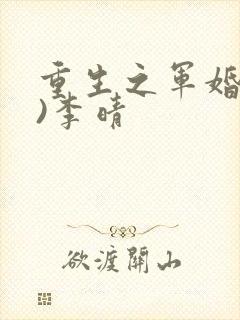 重生之军婚
)李晴
欲渡關山